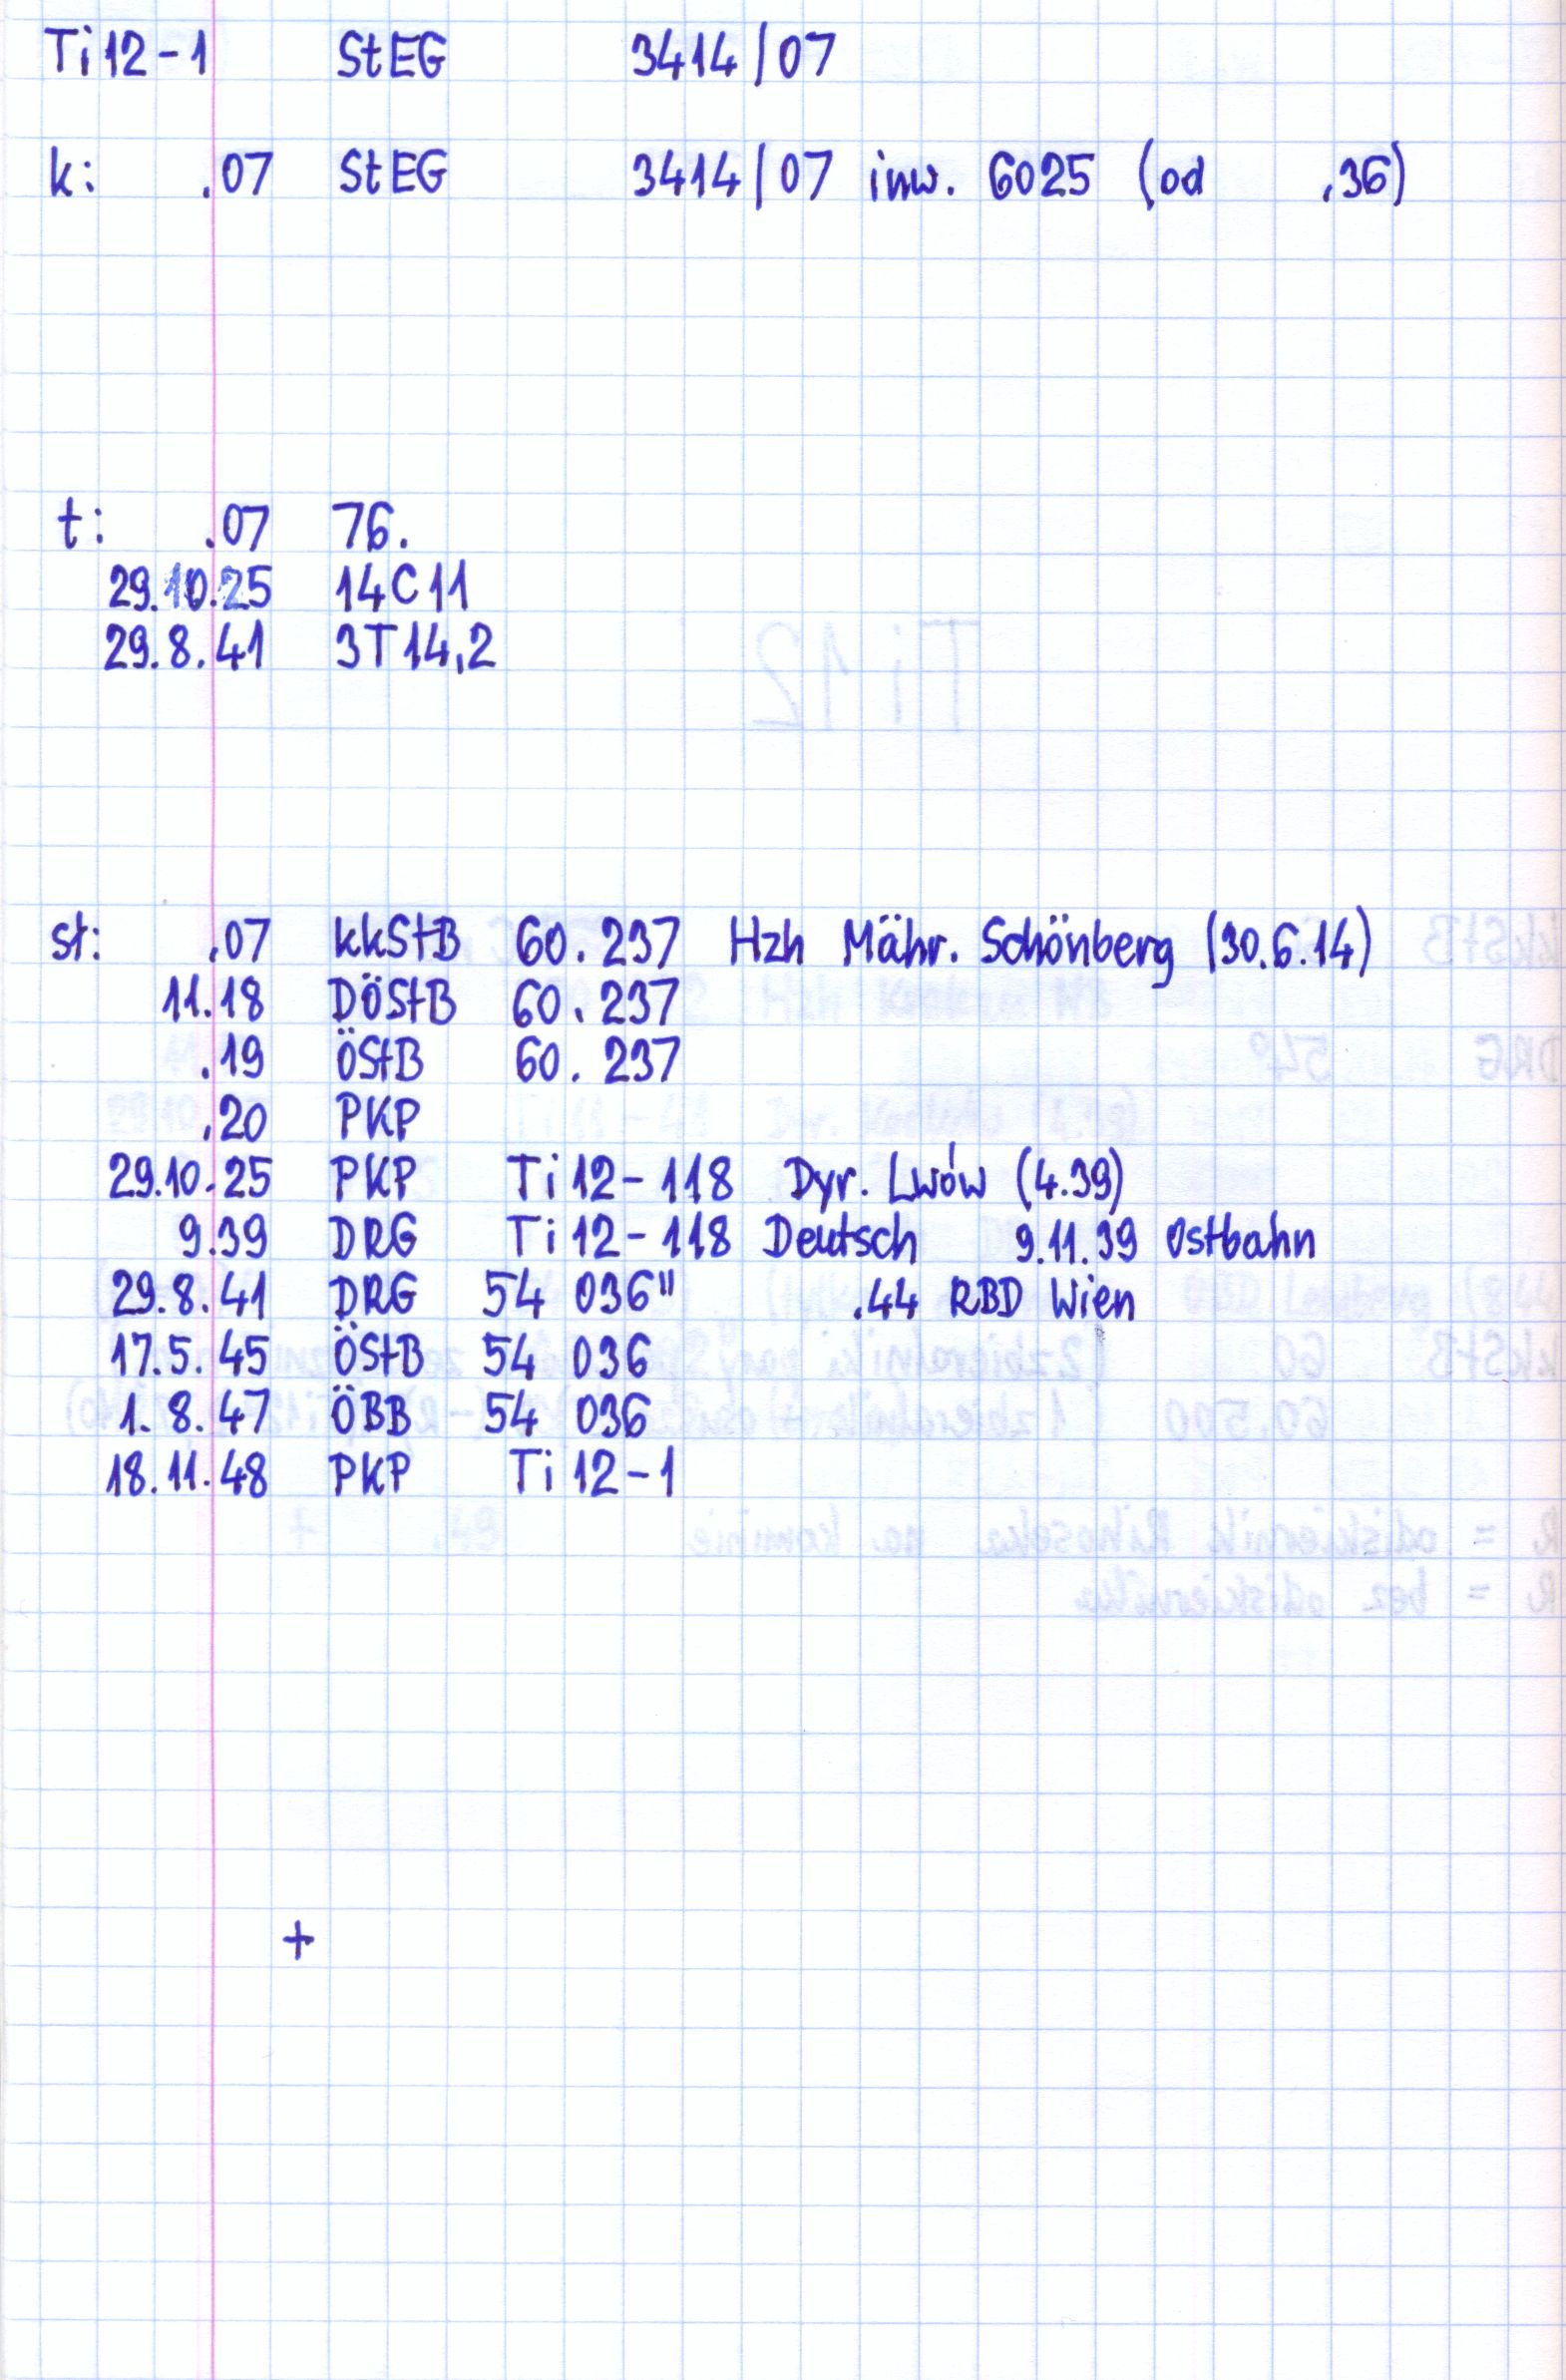 Ti 12-1 StEG 3414/07
k: .07 StEG 3414/07 inw. 6025 (od .36)
t: .07 76.
29.10.25 14C11
29.8.41 3T14,2
st: .07 kkStB 60.237 Hzh Mähr. Schönberg (30.6.14)
11.18 DÖStB 60.237
.19 ÖStB 60.237
.20 PKP
29.10.25 PKP Ti 12-118 Dyr. Lwów (4.39)
9.39 DRG Ti 12-118 Deutsch 9.11.39 Ostbahn
29.8.41 DRG 54 036" .44 RBD Wien
17.5.45 ÖStB 54 036
1.8.47 ÖBB 54 036
18.11.48 PKP Ti 12-1
+